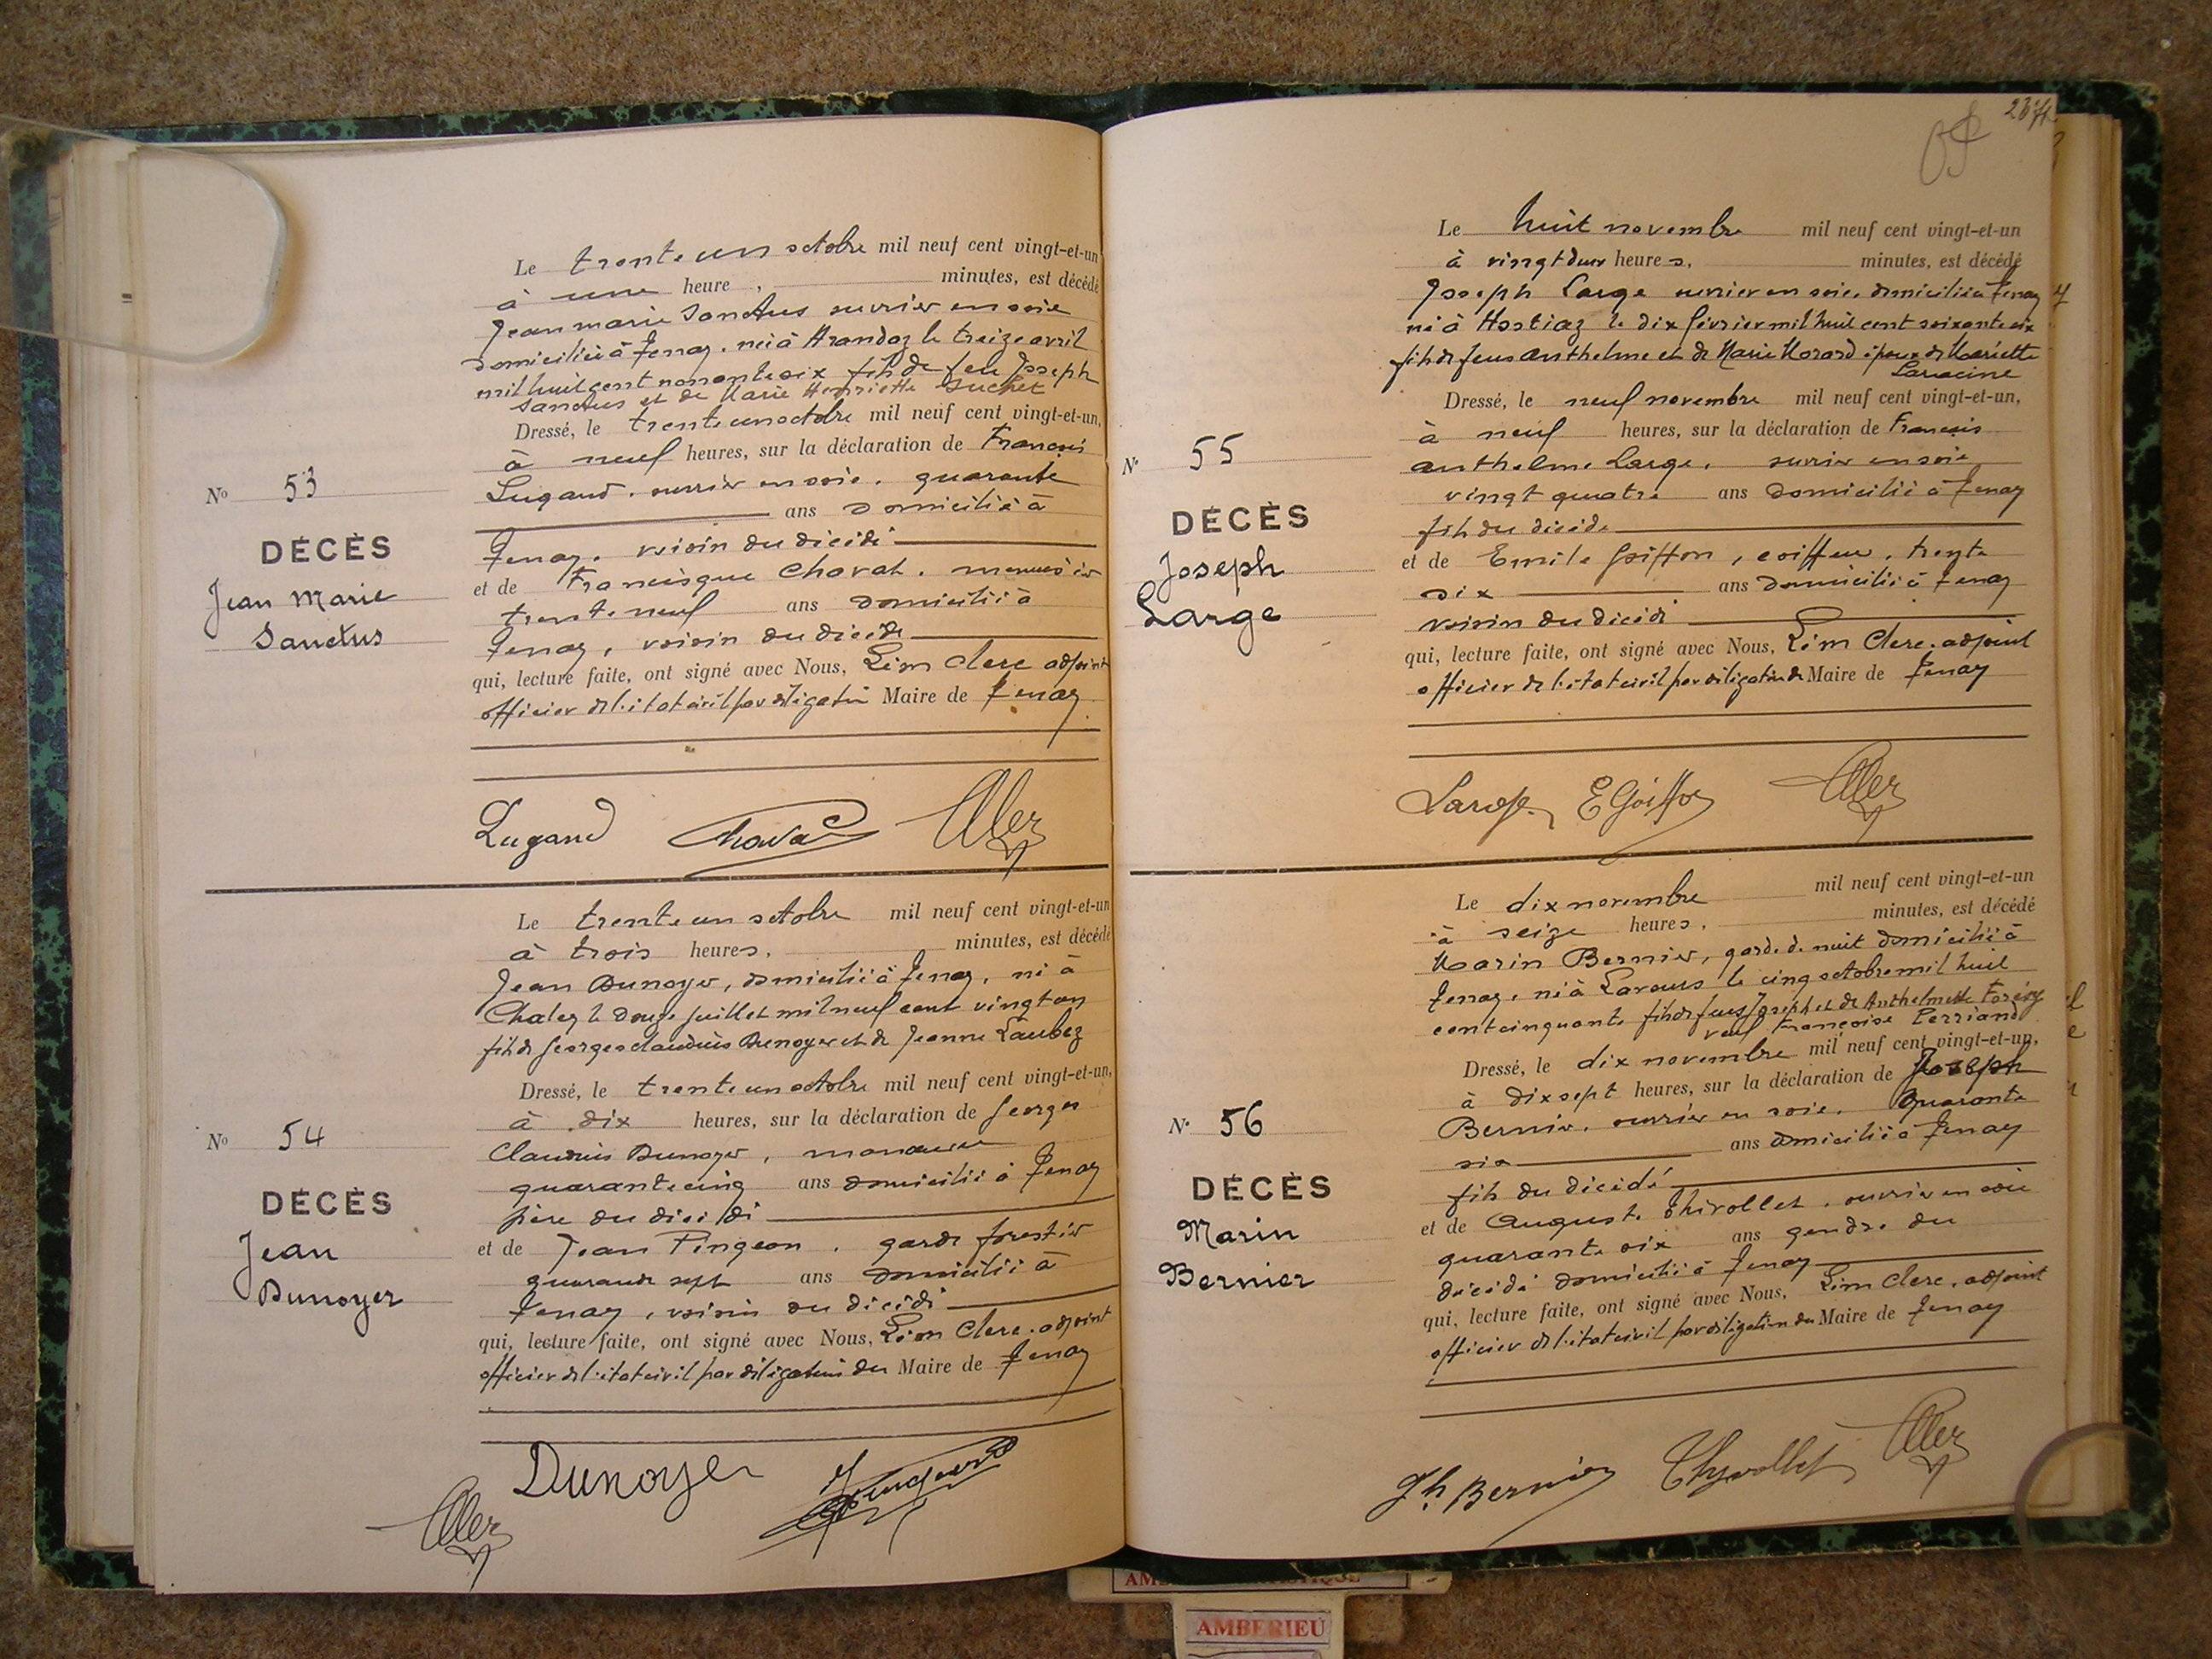 Le trente un octobre mil neuf cent vingt-et-un
à une heure , minutes, est décédé
Jean marie Sanctus ouvrier en soie
domicilié à Tenay. né à Arandaz le treize avril
mil huit cent nonante six fils de feu Joseph
Sanctus et de Marie Henriette Suchet
Dressé, le trente un octobre mil neuf cent vingt-et-un,
à neuf heures, sur la déclaration de François
Lugand. ouvrier en soie. quarante
ans domicilié à
Tenay. voisin du décédé
et de Francisque Chavat. menuisier
trente neuf ans domicilié à
Tenay, voisin du décédé
qui, lecture faite, ont signé avec Nous, Léon Clerc adjoint
officier de l'état civil par délégation Maire de Tenay
No 53
DÉCÈS
Jean Marie
Sanctus
Lugand
Le trente un octobre mil neuf cent vingt-et-un
à trois heures, minutes, est décédé
Jean Dunoyer, domicilié à Tenay, né à
Chaley le douze juillet mil neuf cent vingt un
fils de Georges Claudius Dunoyer et de Jeanne Laubez
Dressé, le trente un octobre mil neuf cent vingt-et-un,
à dix heures, sur la déclaration de Georges
Claudius Dunoyer, manœuvre
quarante cinq ans domicilié à Tenay
père du décédé
et de Jean Pingeon. garde forestier
quarante sept ans domicilié à
Tenay, voisin du décédé
qui, lecture faite, ont signé avec Nous, Léon Clerc. adjoint
officier de l'état civil par délégation du Maire de Tenay
No 54
DÉCÈS
Jean
Dunoyer
Dunoyer
Le huit novembre mil neuf cent vingt-et-un
à vingt deux heures, minutes, est décédé
Joseph Large ouvrier en soie. domicilié à Tenay
né à Hostiaz le dix février mil huit cent soixante six
fils de feus Anthelme et de Marie Morard époux de Mariette
Laracine
Dressé, le neuf novembre mil neuf cent vingt-et-un,
à neuf heures, sur la déclaration de François
Anthelme Large. ouvrier en soie
vingt quatre ans domicilié à Tenay
fils du décédé
et de Emile Goiffon, coiffeur. trente
six ans domicilié à Tenay
voisin du décédé
qui, lecture faite, ont signé avec Nous, Léon Clerc. adjoint
officier de l'état civil par délégation du Maire de Tenay
No 55
DÉCÈS
Joseph
Large
Large E Goiffon
Le dix novembre mil neuf cent vingt-et-un
à seize heures, minutes, est décédé
Marin Bernier, garde de nuit domicilié à
Tenay. né à Lavours le cinq octobre mil huit
cent cinquante fils de feus Joseph et de Anthelmette
veuf Françoise Perriand
Dressé, le dix novembre mil neuf cent vingt-et-un,
à dix sept heures, sur la déclaration de Joseph
Bernier. ouvrier en soie. quarante
six ans domicilié à Tenay
fils du décédé
et de Auguste Thivollet. ouvrier en soie
quarante six ans gendre du
décédé domicilié à Tenay
qui, lecture faite, ont signé avec Nous, Léon Clerc. adjoint
officier de l'état civil par délégation du Maire de Tenay
No 56
DÉCÈS
Marin
Bernier
Jh Bernier Thyvollet
AMBERIEU